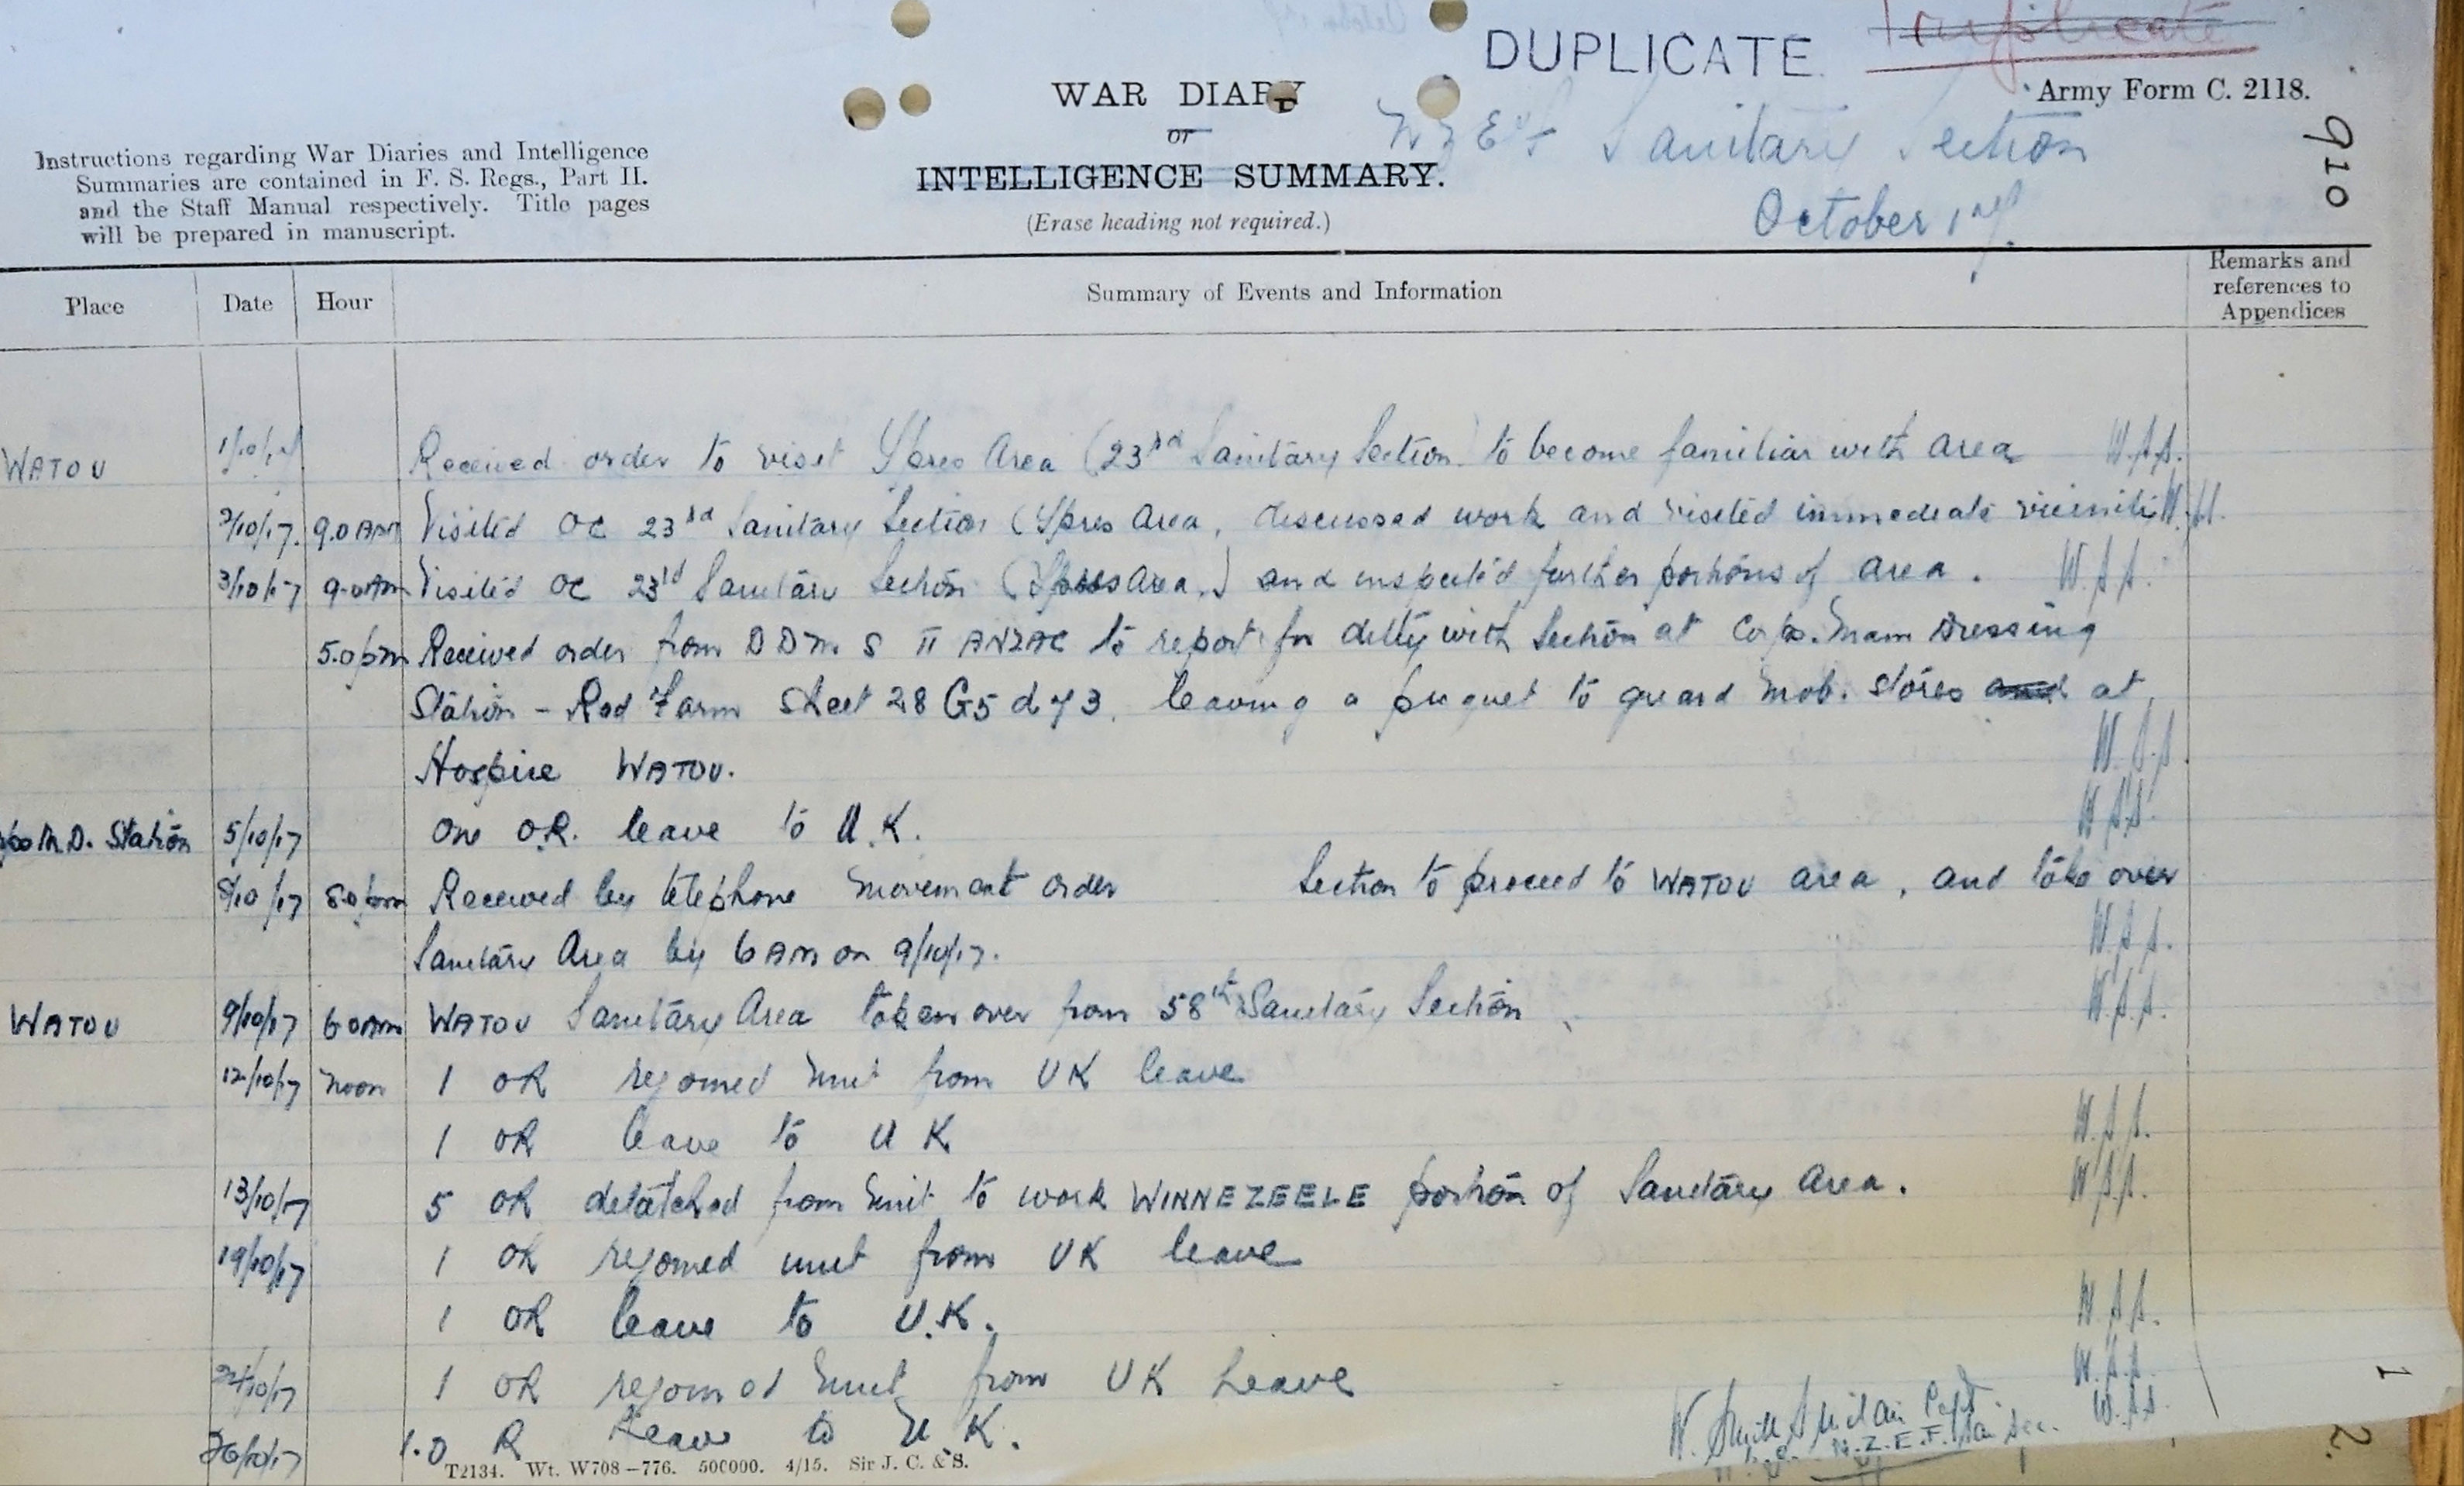 DUPLICATE. Triplicate
WAR DIARY
or
INTELLIGENCE SUMMARY.
(Erase heading not required.)
Army Form C. 2118.
NZEF Sanitary Section
October 1917
910
Instructions regarding War Diaries and Intelligence
Summaries are contained in F. S. Regs., Part II.
and the Staff Manual respectively. Title pages
will be prepared in manuscript.
Place Date Hour Summary of Events and Information Remarks and references to Appendices
WATOU 1/10/17 Received order to visit Ypres Area (23rd Sanitary Section) to become familiar with area W.S.S.
2/10/17. 9.0 AM Visited OC 23rd Sanitary Section (Ypres Area, discussed work and visited immediate vicinity
3/10/17 9.0 AM Visited OC 23rd Sanitary Section (Ypres Area.) and inspected further portions of area. W.S.S.
5.0 pm Received order from DDMS II ANZAC to report for duty with Section at Corps. Main Dressing
Station - Red Farm Sheet 28 G5 d 7 3. leaving a picquet to guard Mob. stores and at
Hospice WATOU. W.S.S.
M.D. Station 5/10/17 One O.R. leave to U.K. W.S.S.
8/10/17 8.0 pm Received by telephone movement order Section to proceed to WATOU area, and take over
Sanitary Area by 6 AM on 9/10/17. W.S.S.
WATOU 9/10/17 6 0 AM WATOU Sanitary Area taken over from 58th Sanitary Section W.S.S.
12/10/17 Noon 1 OR rejoined Unit from UK leave
1 OR leave to UK W.S.S.
13/10/17 5 OR detatched from Unit to work WINNEZEELE portion of Sanitary Area. W.S.S.
19/10/17 1 OR rejoined unit from UK leave
1 OR leave to U.K. W.S.S.
/10/17 1 OR rejoined Unit from UK Leave W.S.S.
26/10/17 1.O R Leave to U.K. W.S.S.
W. Capt
N.Z.E.F. San Sec.
T2134. Wt. W708—776. 500000. 4/15. Sir J. C. & S.
1
2.